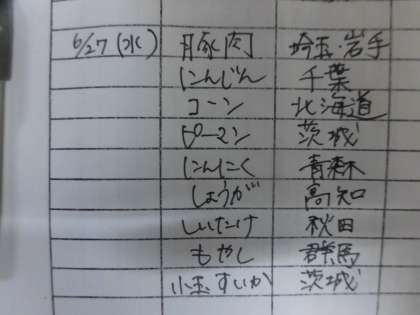 6/27(水) 豚肉 埼玉・岩手
にんじん 千葉
コーン 北海道
ピーマン 茨城
にんにく 青森
しょうが 高知
しいたけ 秋田
もやし 群馬
小玉すいか 茨城